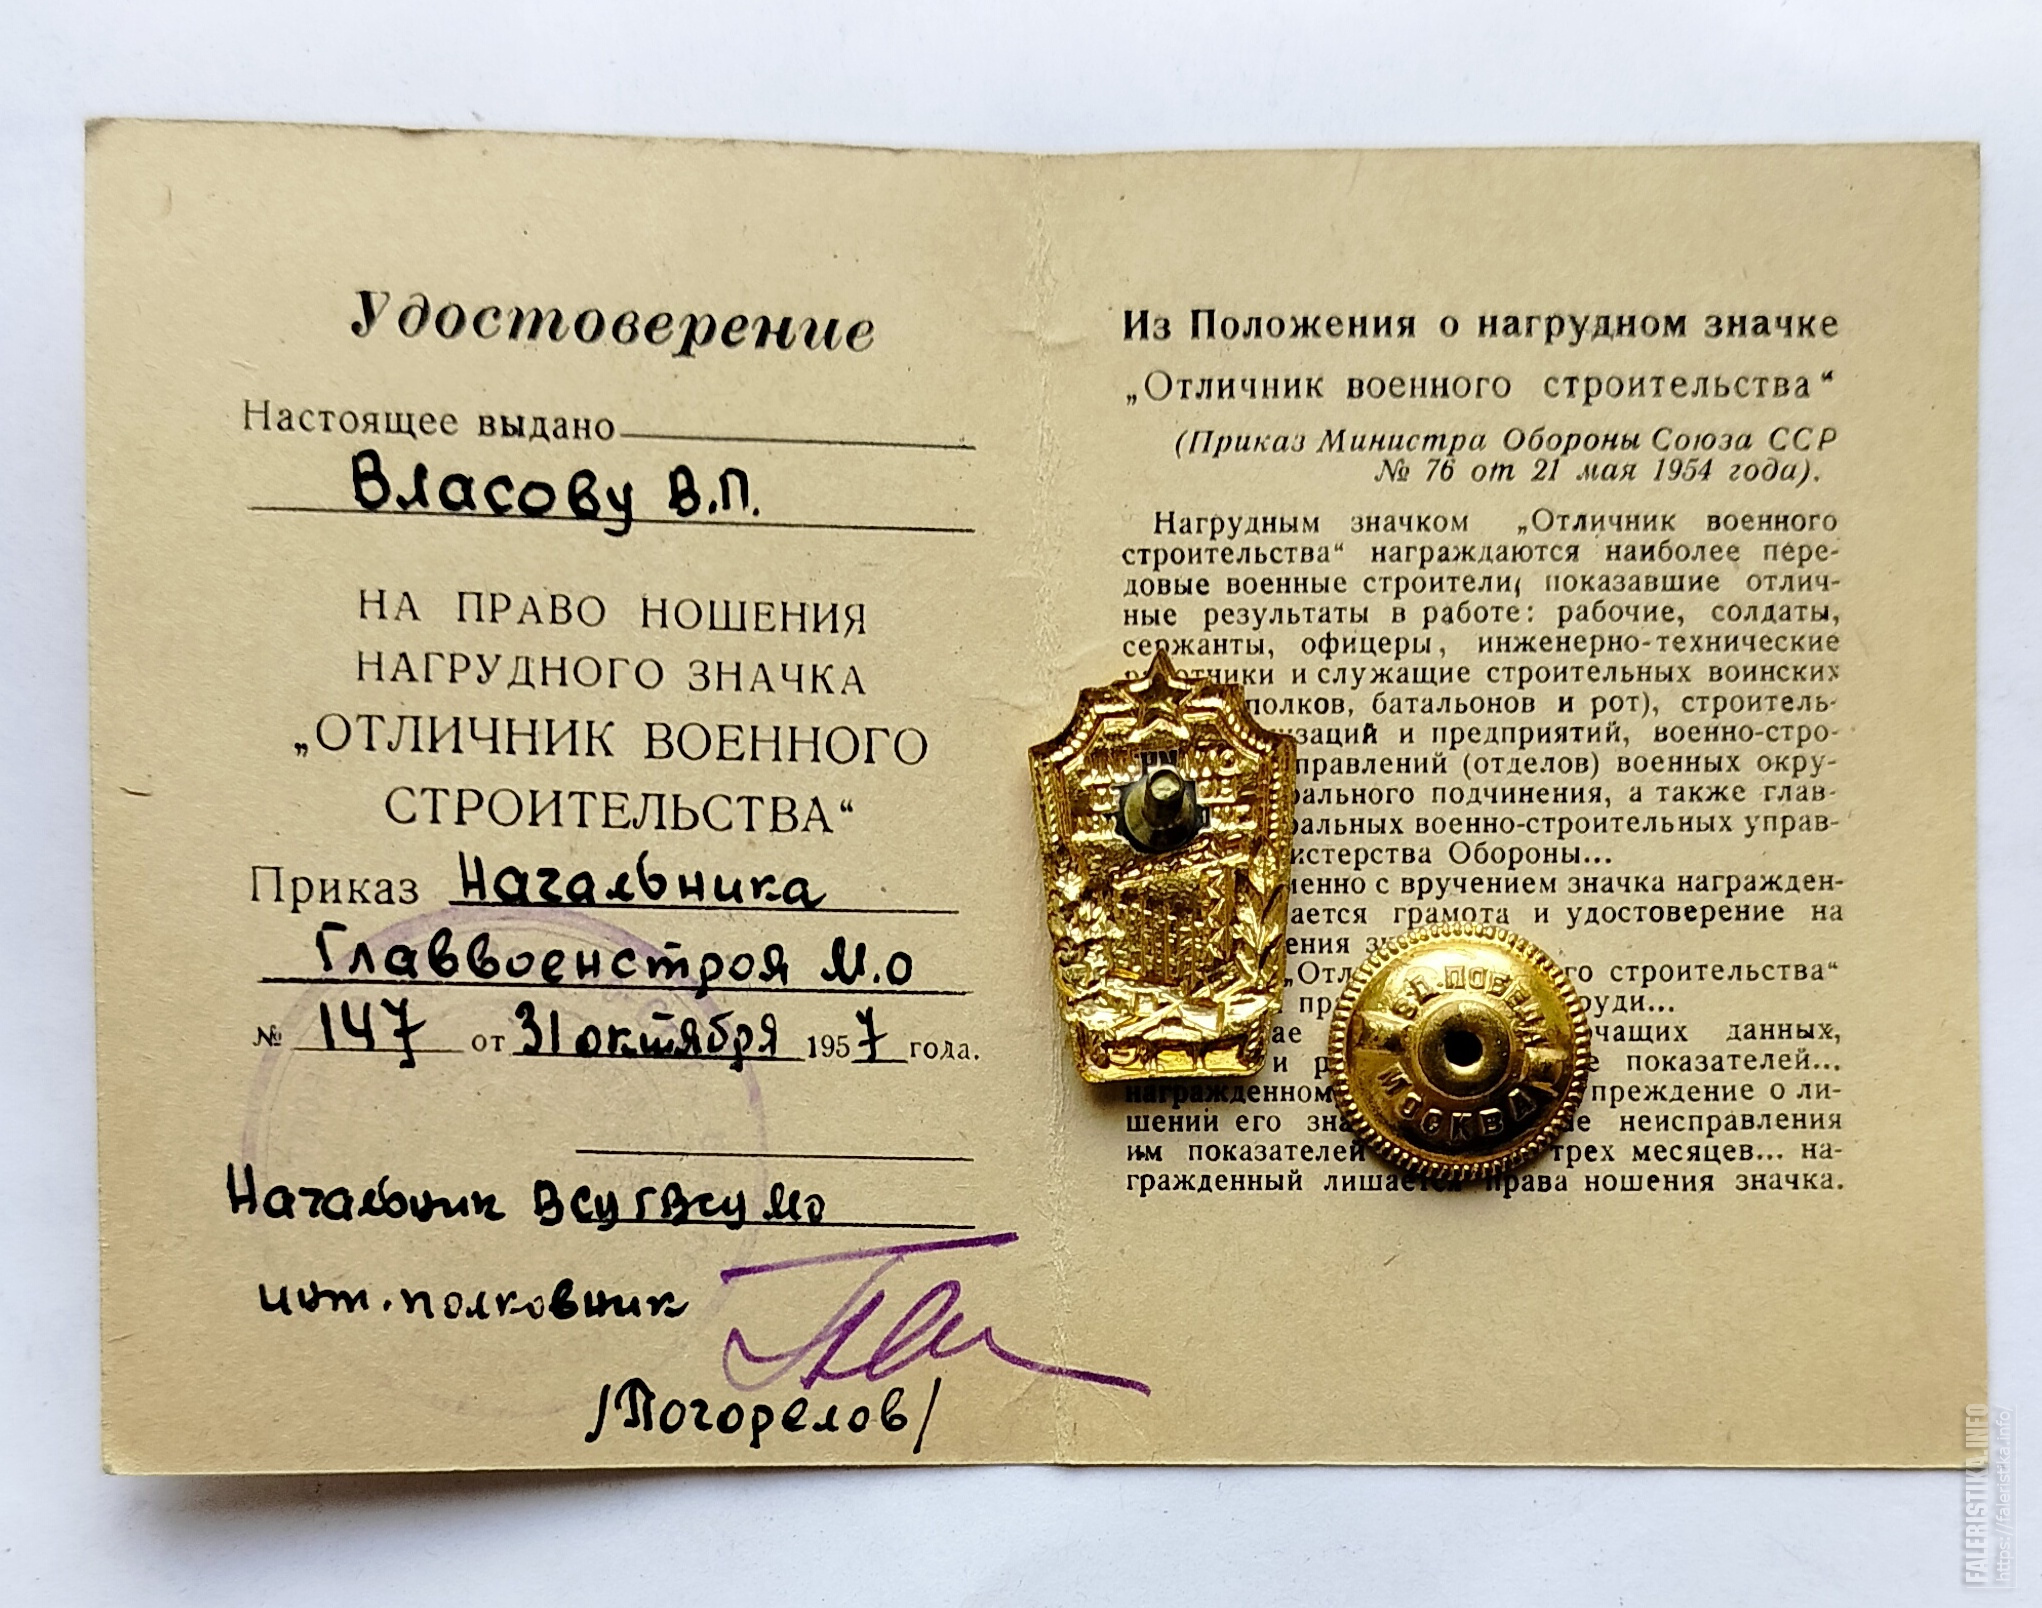 Удостоверение
Настоящее выдано
Власову В.П.
НА ПРАВО НОШЕНИЯ
НАГРУДНОГО ЗНАЧКА
„ОТЛИЧНИК ВОЕННОГО
СТРОИТЕЛЬСТВА“
Приказ Начальника
Главвоенстроя М.О
№ 147 от 31 октября 1957 года.
Начальник ВСУ ГВСУ МО
инж. полковник
/Погорелов/
Из Положения о нагрудном значке
„Отличник военного строительства“
(Приказ Министра Обороны Союза ССР
№ 76 от 21 мая 1954 года).
Нагрудным значком „Отличник военного
строительства“ награждаются наиболее пере-
довые военные строители, показавшие отлич-
ные результаты в работе: рабочие, солдаты,
сержанты, офицеры, инженерно-технические
и служащие строительных воинских
полков, батальонов и рот), строитель-
заций и предприятий, военно-стро-
правлений (отделов) военных окру-
рального подчинения, а также глав-
ральных военно-строительных управ-
истерства Обороны...
менно с вручением значка награжден-
ается грамота и удостоверение на
ения
„Отл го строительства“
пр руди...
ае чащих данных,
и р е показателей...
награжденном преждение о ли-
шении его зна е неисправления
им показателей трех месяцев... на-
гражденный лишается права ношения значка.
ЗД. ПОБЕДА
МОСКВА
FALERISTIKA.INFO
https://faleristika.info/